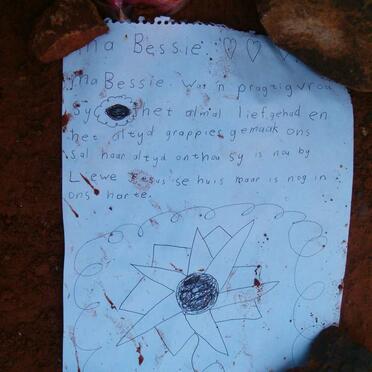 Ma Bessie.
Ma Bessie. Wat 'n pragtig vrou
Sy het almal lief gehad en
het altyd grappies gemaak ons
sal haar altyd onthou sy is nou by
Liewe Jesus se huis maar is nog in
ons harte.